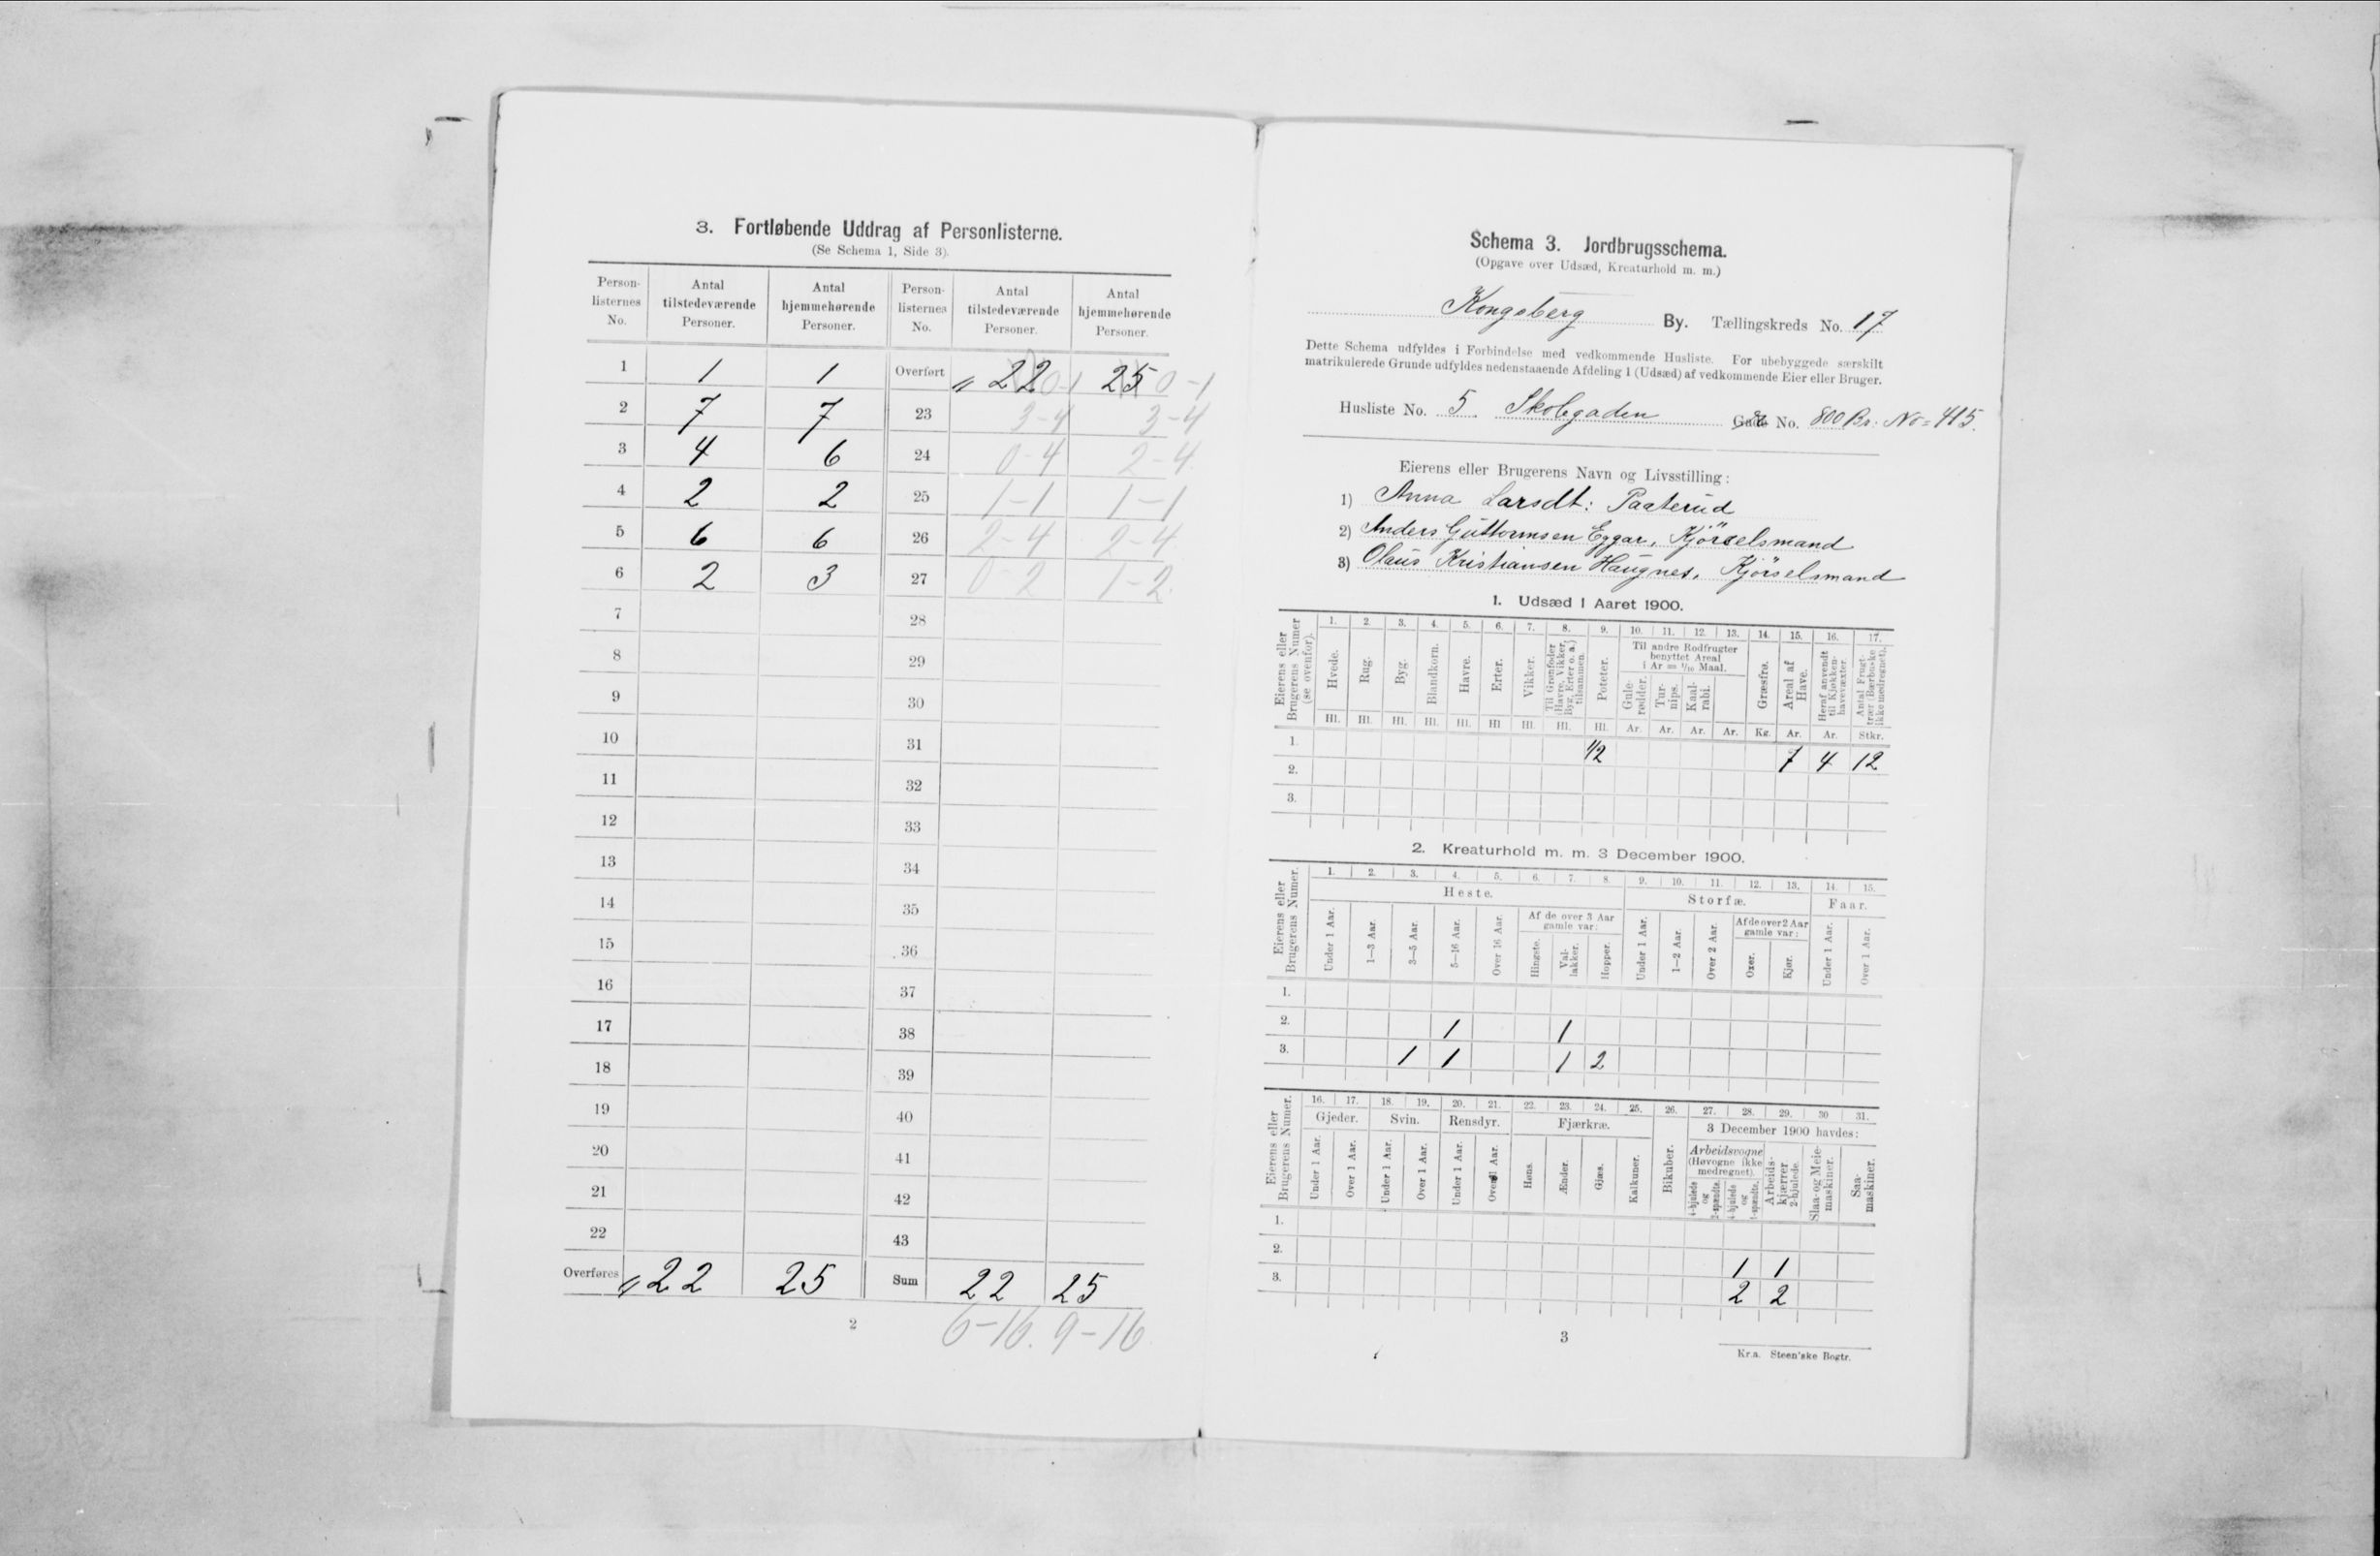 3. Fortløbende Uddrag af Personlisterne.
(Se Schema 1, Side 3).
Person-listernes No. | Antal tilstedeværende Personer. | Antal hjemmehørende Personer. | Person-listernes No. | Antal tilstedeværende Personer. | Antal hjemmehørende Personer.
1 1 1 Overført „ 22 0-1 25 0-1
2 7 7 23 3-4 3-4
3 4 6 24 0-4 2-4
4 2 2 25 1-1 1-1
5 6 6 26 2-4 2-4
6 2 3 27 0-2 1-2
7 28
8 29
9 30
10 31
11 32
12 33
13 34
14 35
15 36
16 37
17 38
18 39
19 40
20 41
21 42
22 43
Overføres „ 22 25 Sum 22 25
6-16. 9-16
2
Schema 3. Jordbrugsschema.
(Opgave over Udsæd, Kreaturhold m. m.)
Kongsberg By. Tællingskreds No. 17
Dette Schema udfyldes i Forbindelse med vedkommende Husliste. For ubebyggede særskilt
matrikulerede Grunde udfyldes nedenstaaende Afdeling 1 (Udsæd) af vedkommende Eier eller Bruger.
Husliste No. 5 Skolegaden Gade No. 800 Br. No = 415.
Eierens eller Brugerens Navn og Livsstilling:
1) Anna Larsdt: Paaterud
2) Anders Guttormsen Eggar, Kjörselsmand
3) Olaus Kristiansen Haugnes, Kjörselsmand
1. Udsæd i Aaret 1900.
Eierens eller Brugerens Numer (se ovenfor).
1. 2. 3. 4. 5. 6. 7. 8. 9. 10. 11. 12. 13. 14. 15. 16. 17.
Hvede. Rug. Byg. Blandkorn. Havre. Erter. Vikker. Til Grønfoder (Havre, Vikker, Byg, Erter o. a.) tilsammen. Poteter. Til andre Rodfrugter benyttet Areal i Ar = 1/10 Maal. Gule-rødder. Tur-nips. Kaal-rabi. Græsfrø. Areal af Have. Heraf anvendt til Kjøkken-havevæxter. Antal Frugt-trær (Bærbuske ikke medregnet).
Hl. Hl. Hl. Hl. Hl. Hl. Hl. Hl. Hl. Ar. Ar. Ar. Ar. Kg. Ar. Ar. Stkr.
1. 1/2 7 4 12
2.
3.
2. Kreaturhold m. m. 3 December 1900.
Eierens eller Brugerens Numer.
1. 2. 3. 4. 5. 6. 7. 8. 9. 10. 11. 12. 13. 14. 15.
Heste. Storfæ. Faar.
Under 1 Aar. 1—3 Aar. 3—5 Aar. 5—16 Aar. Over 16 Aar. Af de over 3 Aar gamle var: Hingste. Val-lakker. Hopper. Under 1 Aar. 1—2 Aar. Over 2 Aar. Af de over 2 Aar gamle var: Oxer. Kjør. Under 1 Aar. Over 1 Aar.
1.
2. 1 1
3. 1 1 1 2
Eierens eller Brugerens Numer.
16. 17. 18. 19. 20. 21. 22. 23. 24. 25. 26. 27. 28. 29. 30 31.
Gjeder. Svin. Rensdyr. Fjærkræ. Bikuber. 3 December 1900 havdes:
Under 1 Aar. Over 1 Aar. Under 1 Aar. Over 1 Aar. Under 1 Aar. Over 1 Aar. Høns. Ænder. Gjæs. Kalkuner. Arbeidsvogne (Høvogne ikke medregnet). 4-hjulede og 2-spændte. 4-hjulede og 1-spændte. Arbeids-kjærrer 2-hjulede. Slaa- og Meie-maskiner. Saa-maskiner.
1.
2. 1 1
3. 2 2
3
Kr.a. Steen'ske Bogtr.